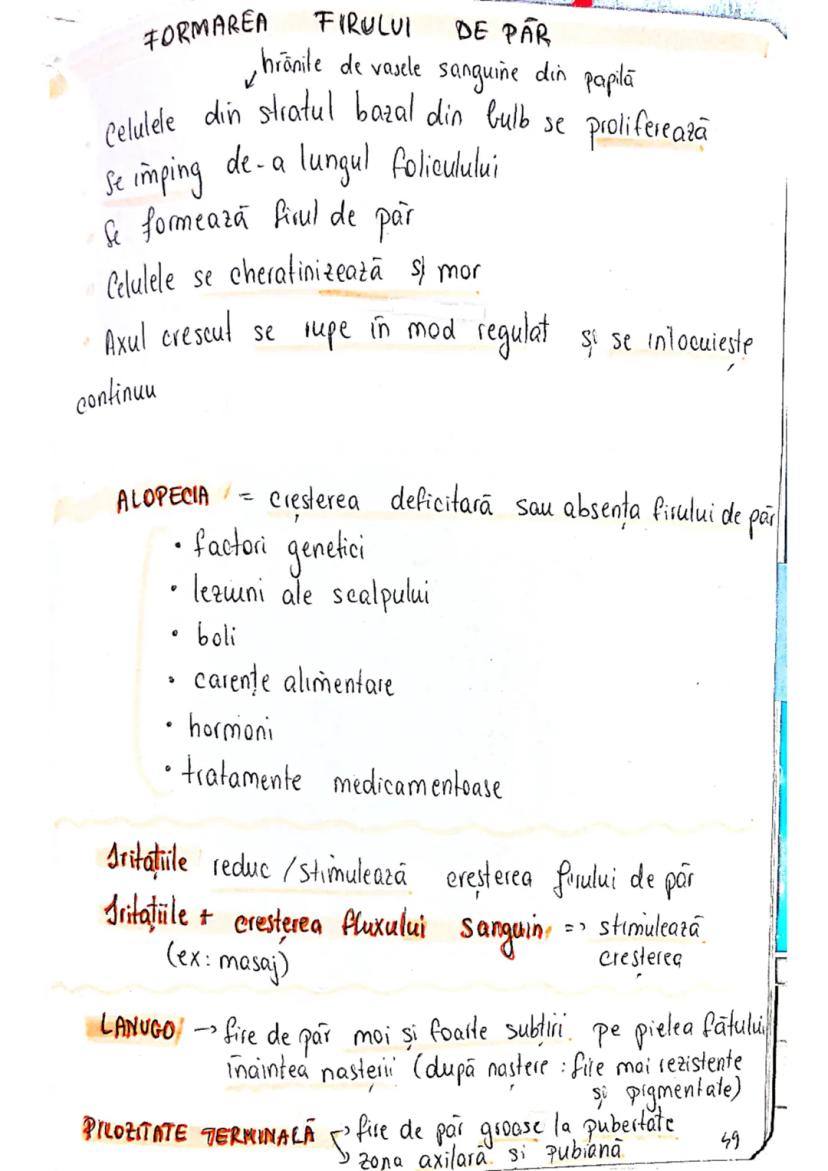 FORMAREA FIRULUI DE PĂR
hrănite de vasele sanguine din papilă
Celulele din stratul bazal din bulb se proliferează
Se împing de-a lungul foliculului
Se formează firul de păr
Celulele se cheratinizează și mor
Axul crescut se rupe în mod regulat și se înlocuiește
continuu
ALOPECIA = creșterea deficitară sau absența firului de păr
• factori genetici
• leziuni ale scalpului
• boli
• carențe alimentare
• hormoni
• tratamente medicamentoase
Iritațiile reduc / stimulează creșterea firului de păr
Iritațiile + creșterea fluxului sanguin => stimulează
(ex: masaj) creșterea
LANUGO → fire de păr moi și foarte subțiri pe pielea fătului
înaintea nașterii (după naștere : fire mai rezistente
și pigmentate)
PILOZITATE TERMINALĂ → fire de păr groase la pubertate
→ zona axilară și pubiană
49